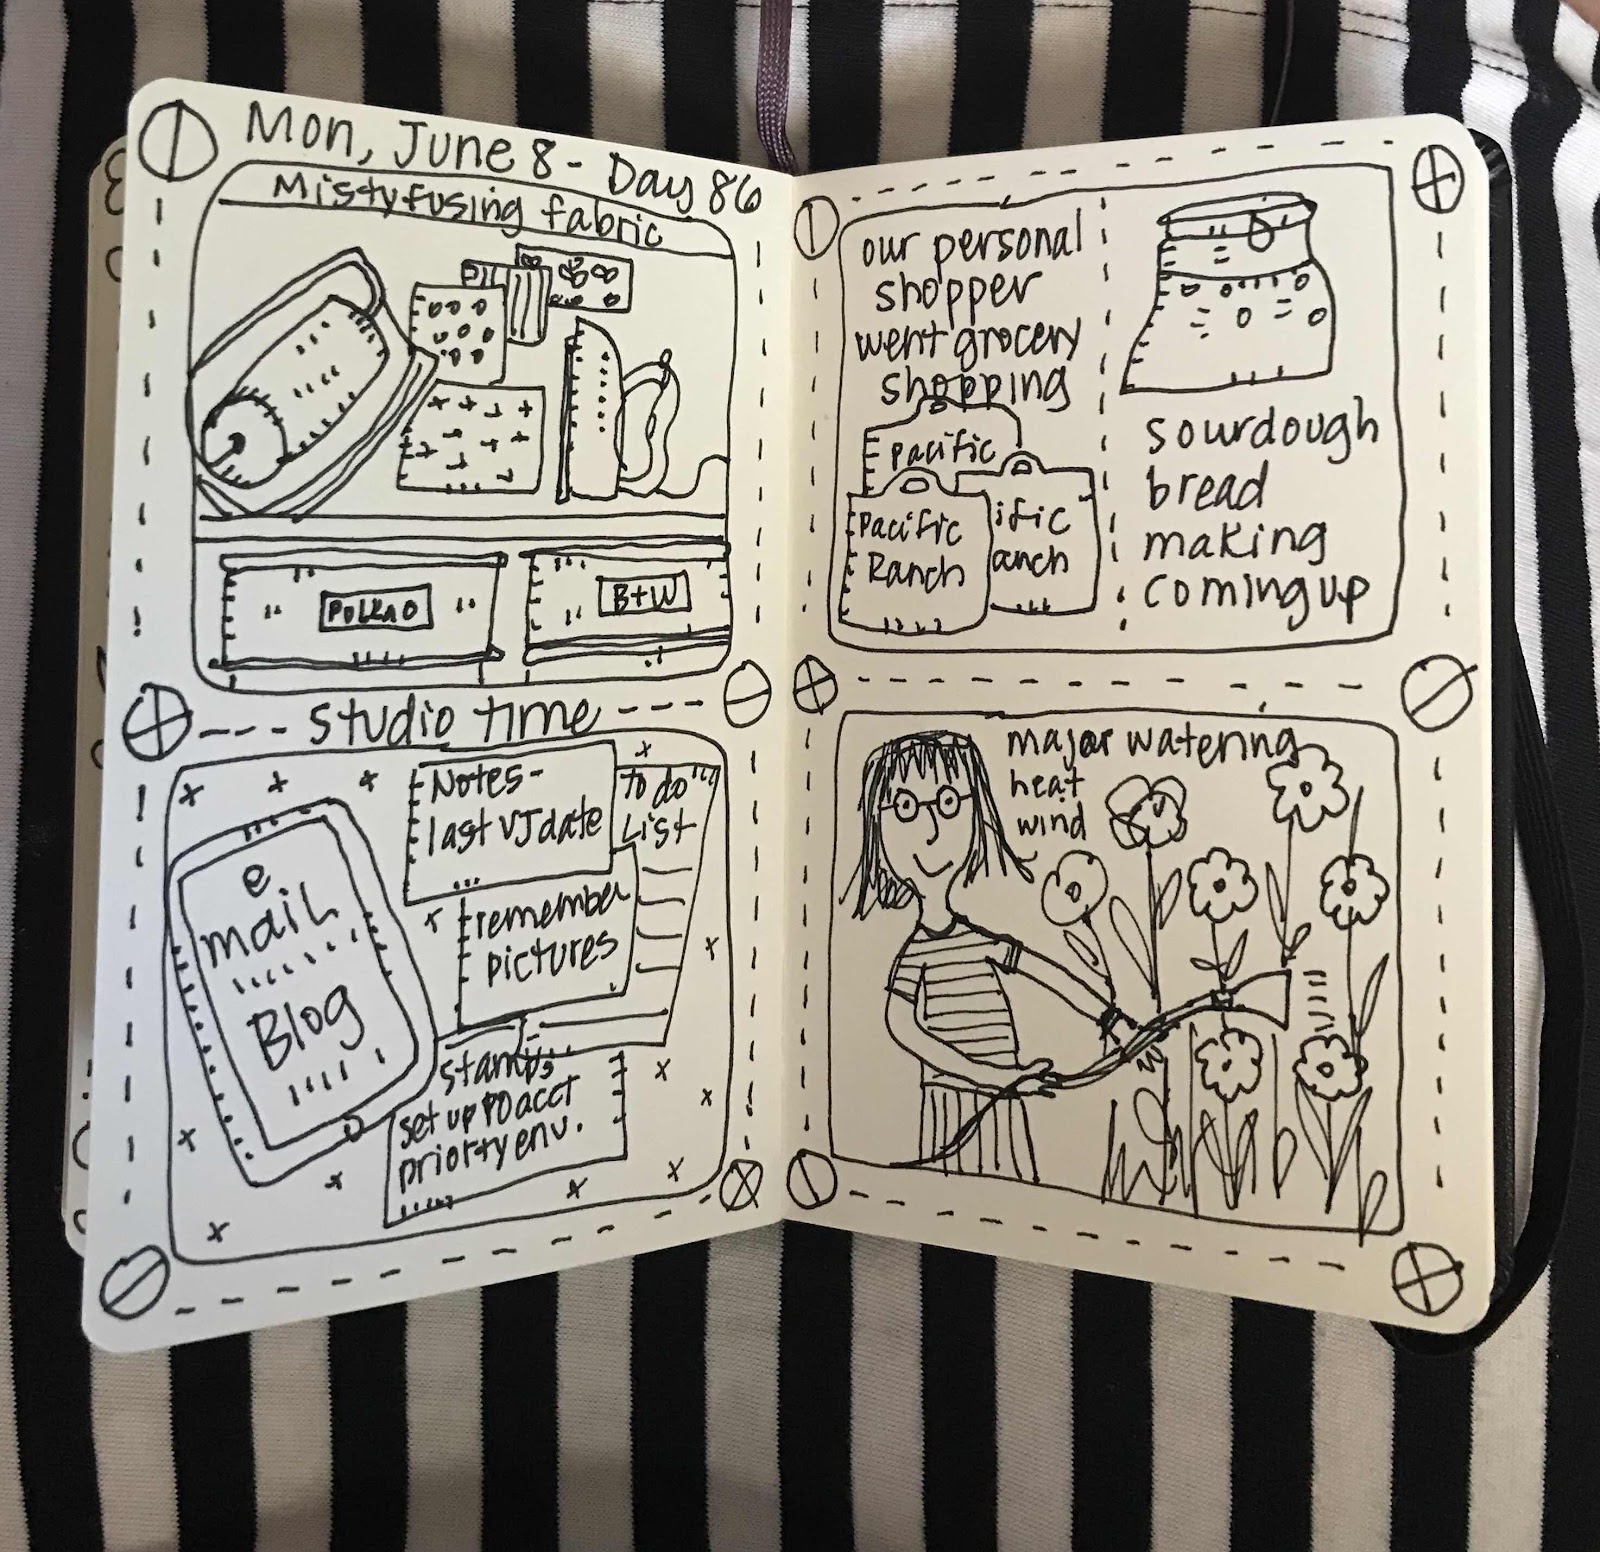 Mon, June 8 - Day 86
Mistyfusing fabric
POLKA O
B+W
studio time
e
mail
Blog
Notes -
last VJ date
To do
List
remember
pictures
stamps
set up PO acct
priority env.
our personal
shopper
went grocery
shopping
Pacific
Pacific
Ranch
ific
anch
sourdough
bread
making
coming up
major watering
heat
wind